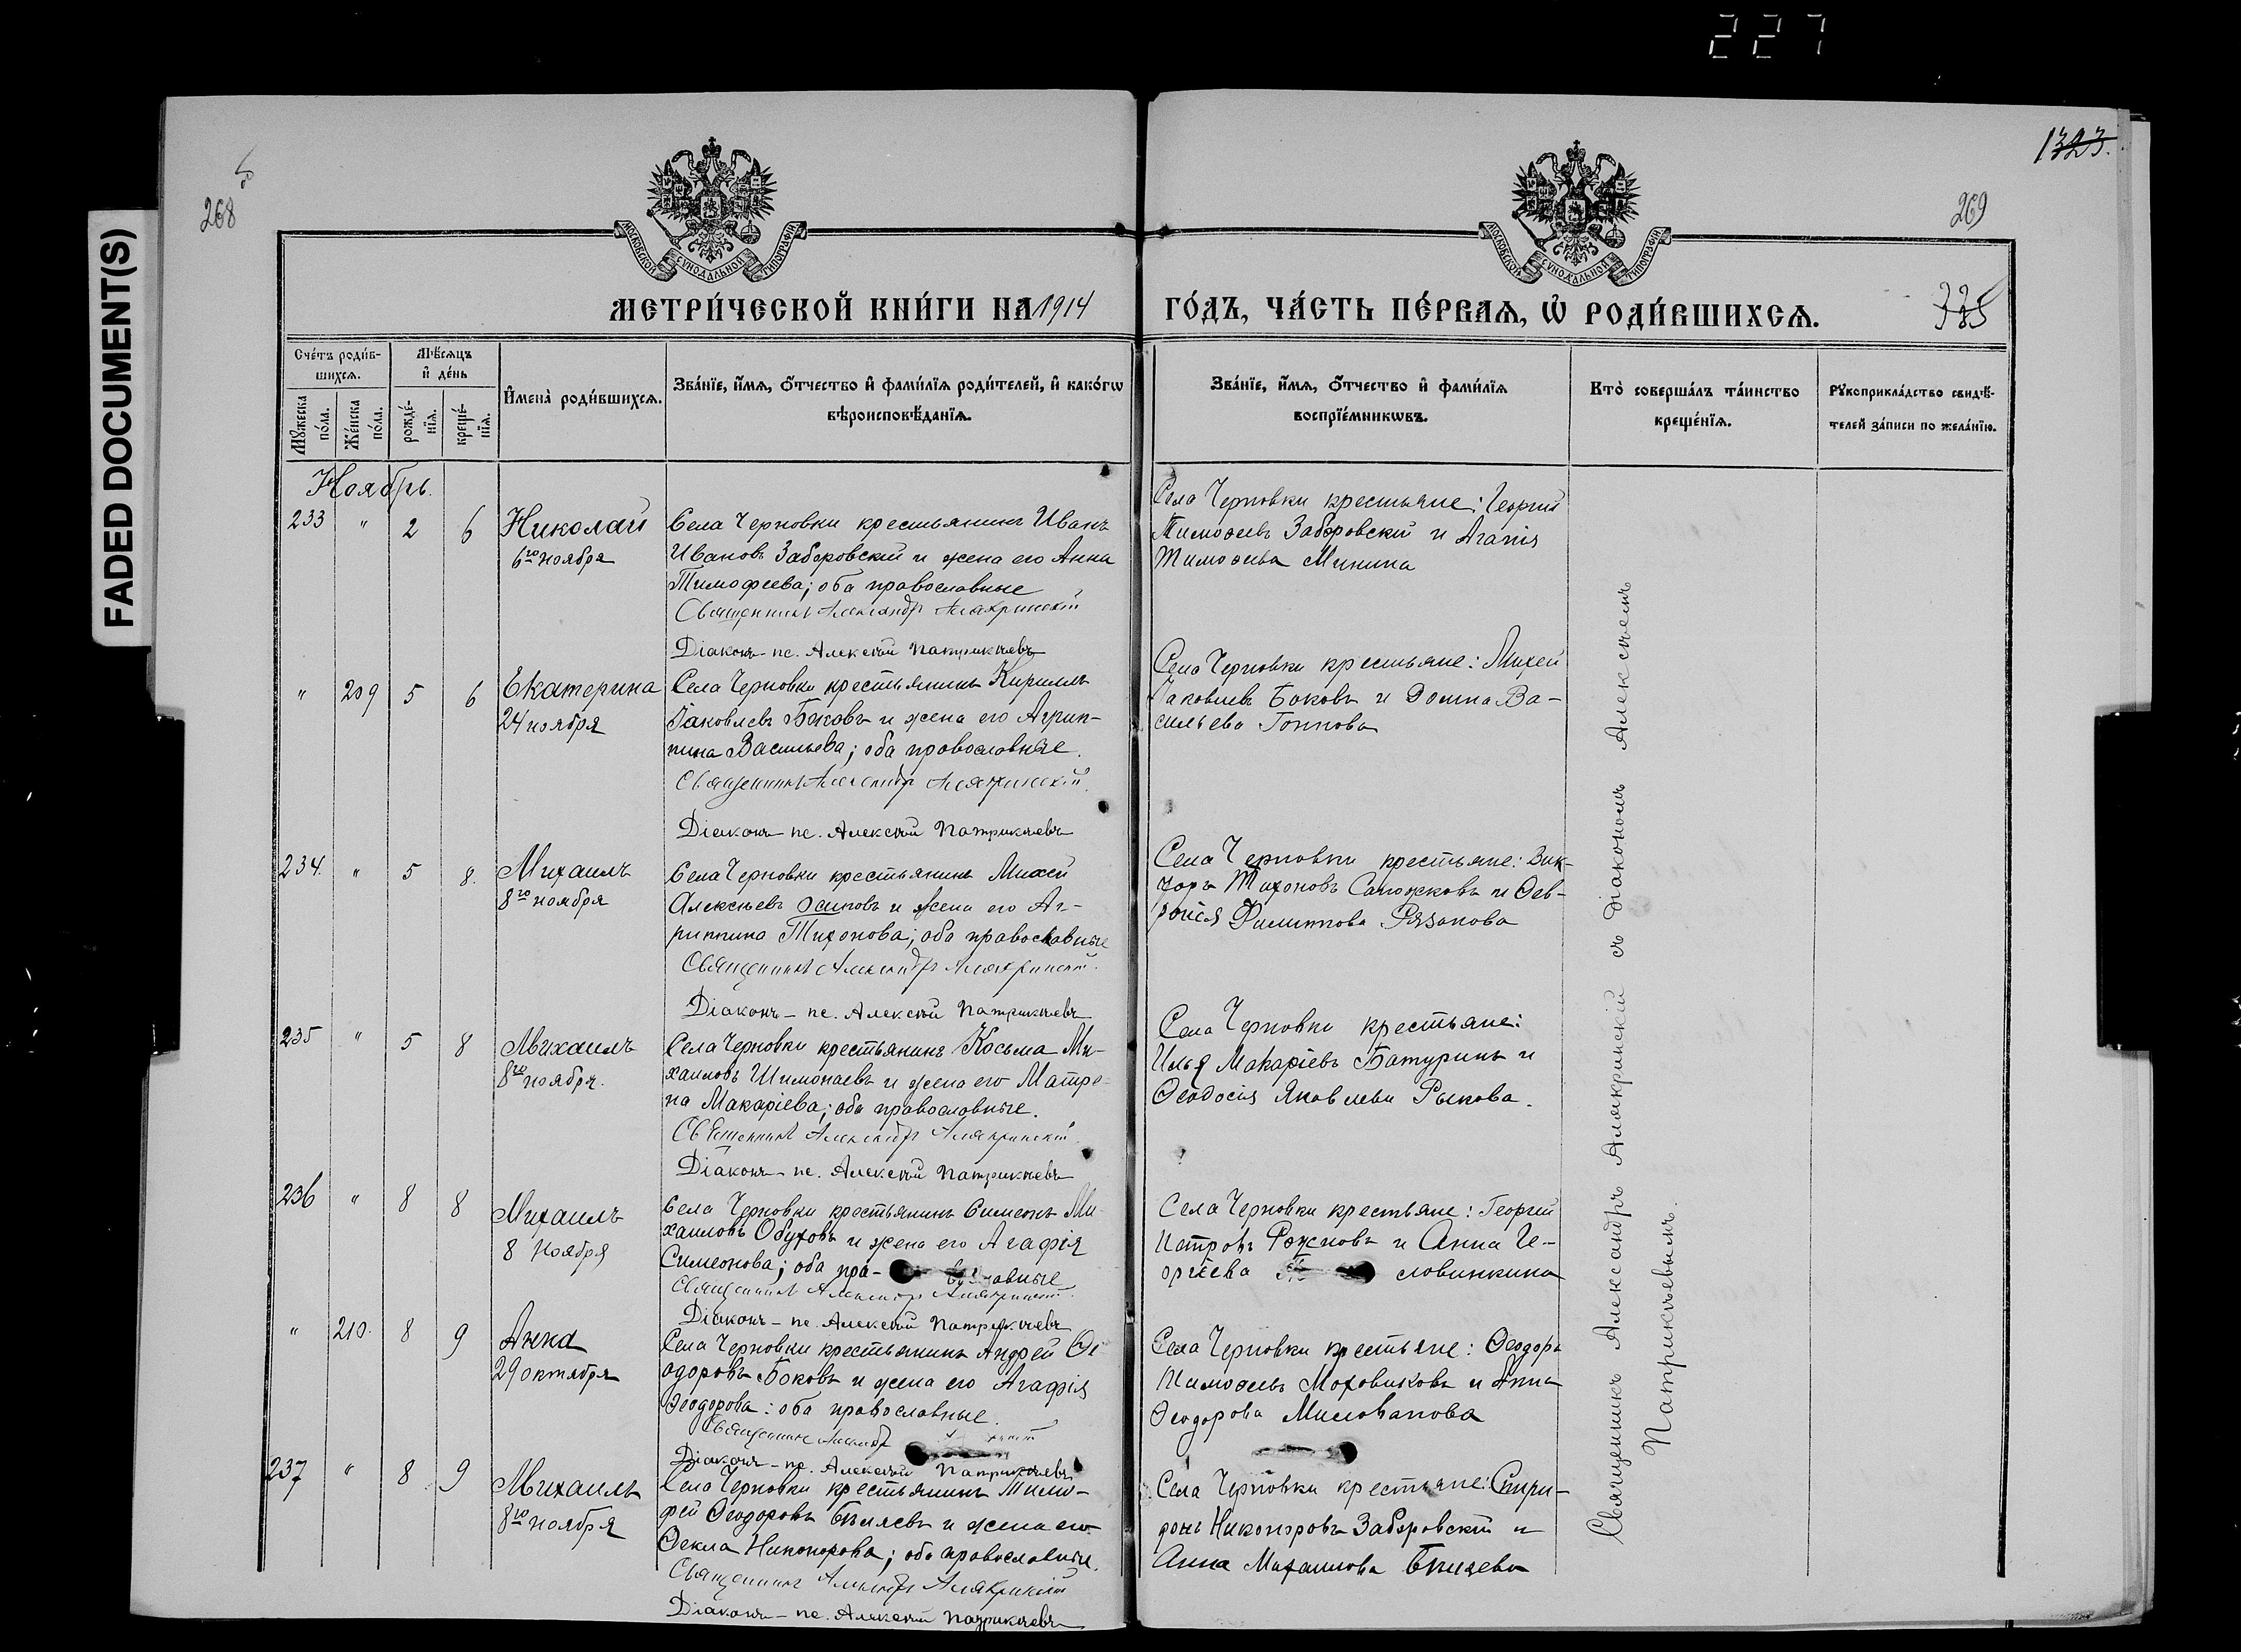 227
FADED DOCUMENT(S)
268
1323.
269
МОСКОВСКОЙ СУНОДАЛЬНОЙ ТИПОГРАФІИ
МОСКОВСКОЙ СУНОДАЛЬНОЙ ТИПОГРАФІИ
МЕТРИ́ЧЕСКОЙ КНИ́ГИ НА 1914
ГО́ДЪ, ЧА́СТЬ ПЕ́РВАѦ, Ѡ҆ РОДИ́ВШИХСѦ.
Сче́тъ роди́в-
шихсѧ.
Мѣ́сѧцъ
и҆ де́нь
Мꙋ́жеска
по́ла.
Же́нска
по́ла.
рожде́-
нїѧ.
креще́-
нїѧ.
И҆мена̀ роди́вшихсѧ.
Зва́нїе, и҆́мѧ, ѻ҆́тчество и҆ фами́лїѧ роди́телей, и҆ како́гѡ
вѣроисповѣ́данїѧ.
Зва́нїе, и҆́мѧ, ѻ҆́тчество и҆ фами́лїѧ
воспрїе́мникѡвъ.
Кто̀ соверша́лъ та́инство
креще́нїѧ.
Рꙋкоприкла́дство свидѣ́-
телей за́писи по жела́нїю.
Ноябрь.
233 " 2 6
Николай
6го ноября
Села Черновки крестьянинъ Иванъ
Ивановъ Заборовскій и жена его Анна
Тимофеева; оба православные
Священникъ Александръ Алякринскій
Діаконъ-пс. Алексѣй Патрикѣевъ
Села Черновки крестьяне: Георгій
Тимоѳеевъ Заборовскій и Агапія
Тимоѳеева Минина
" 209 5 6
Екатерина
24 ноября
Села Черновки крестьянинъ Кириллъ
Іаковлевъ Боковъ и жена его Агрип-
пина Васильева; оба православные.
Священникъ Александръ Алякринскій.
Діаконъ-пс. Алексѣй Патрикѣевъ
Села Черновки крестьяне: Михей
Іаковлевъ Боковъ и Домна Ва-
сильева
234. " 5 8.
Михаилъ
8го ноября
Села Черновки крестьянинъ Михей
Алексѣевъ Осиповъ и жена его Аг-
риппина Тихонова; оба православные
Священникъ Александръ Алякринскій.
Діаконъ-пс. Алексѣй Патрикѣевъ
Села Черновки крестьяне: Вик-
торъ Тихоновъ Сапожковъ и Ѳев-
ронія Филиппова Рязанова
235 " 5 8
Михаилъ
8го ноября.
Села Черновки крестьянинъ Косьма Ми-
хаиловъ Шимонаевъ и жена его Матре-
на Макаріева; оба православные.
Священникъ Александръ Алякринскій.
Діаконъ-пс. Алексѣй Патрикѣевъ
Села Черновки крестьяне:
Илья Макаріевъ Батуринъ и
Ѳеодосія Яковлева Рыкова.
236 " 8 8
Михаилъ
8 Ноября
Села Черновки крестьянинъ Симеонъ Ми-
хаиловъ Обуховъ и жена его Агафія
Симеонова; оба пра- вославные
Священникъ Александръ Алякринскій.
Діаконъ-пс. Алексѣй Патрикѣевъ
Села Черновки крестьяне: Георгій
Петровъ Рожновъ и Анна Ге-
оргіева словинкина
" 210. 8 9
Анна
29 октября
Села Черновки крестьянинъ Андрей Ѳе-
одоровъ Боковъ и жена его Агафія
Ѳеодорова: оба православные.
Священникъ Александръ
Діаконъ-пс. Алексѣй Патрикѣевъ
Села Черновки крестьяне: Ѳеодоръ
Тимоѳеевъ Моховиковъ и Анна
Ѳеодорова Милованова
237 " 8 9
Михаилъ
8го ноября
Села Черновки крестьянинъ Тимо-
фей Ѳеодоровъ Бѣляевъ и жена его
Ѳекла Никонорова; оба православные.
Священникъ Александръ Алякринскій
Діаконъ-пс. Алексѣй Патрикѣевъ
Села Черновки крестьяне: Спири-
донъ Никоноровъ Заборовскій и
Анна Михаилова
Священникъ Александръ Алякринскій съ діакономъ Алексѣемъ
Патрикѣевымъ.